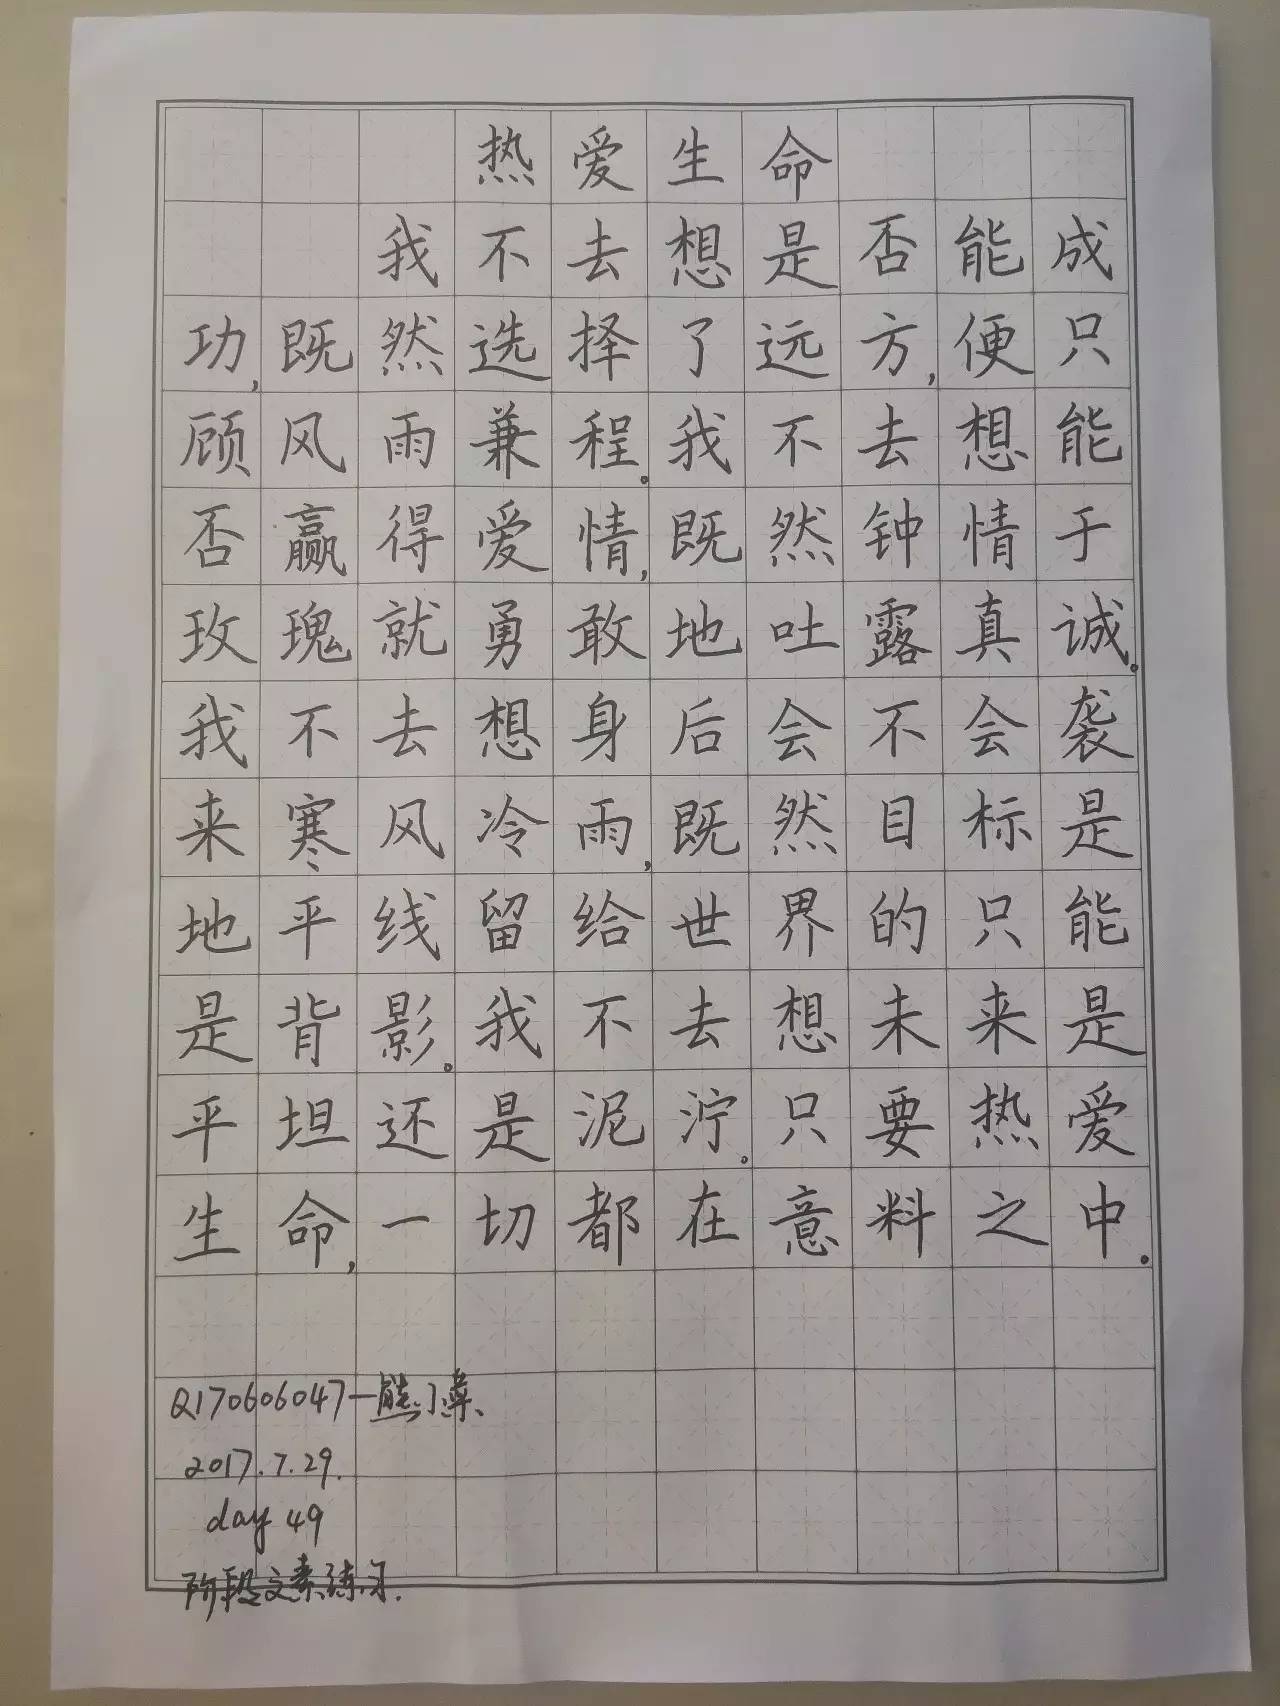 热爱生命
我不去想是否能成
功,既然选择了远方,便只
顾风雨兼程。我不去想能
否赢得爱情,既然钟情于
玫瑰就勇敢地吐露真诚。
我不去想身后会不会袭
来寒风冷雨,既然目标是
地平线留给世界的只能
是背影。我不去想未来是
平坦还是泥泞。只要热爱
生命,一切都在意料之中。
Q170606047—熊小
2017.7.29.
day 49
阶段文素练习.